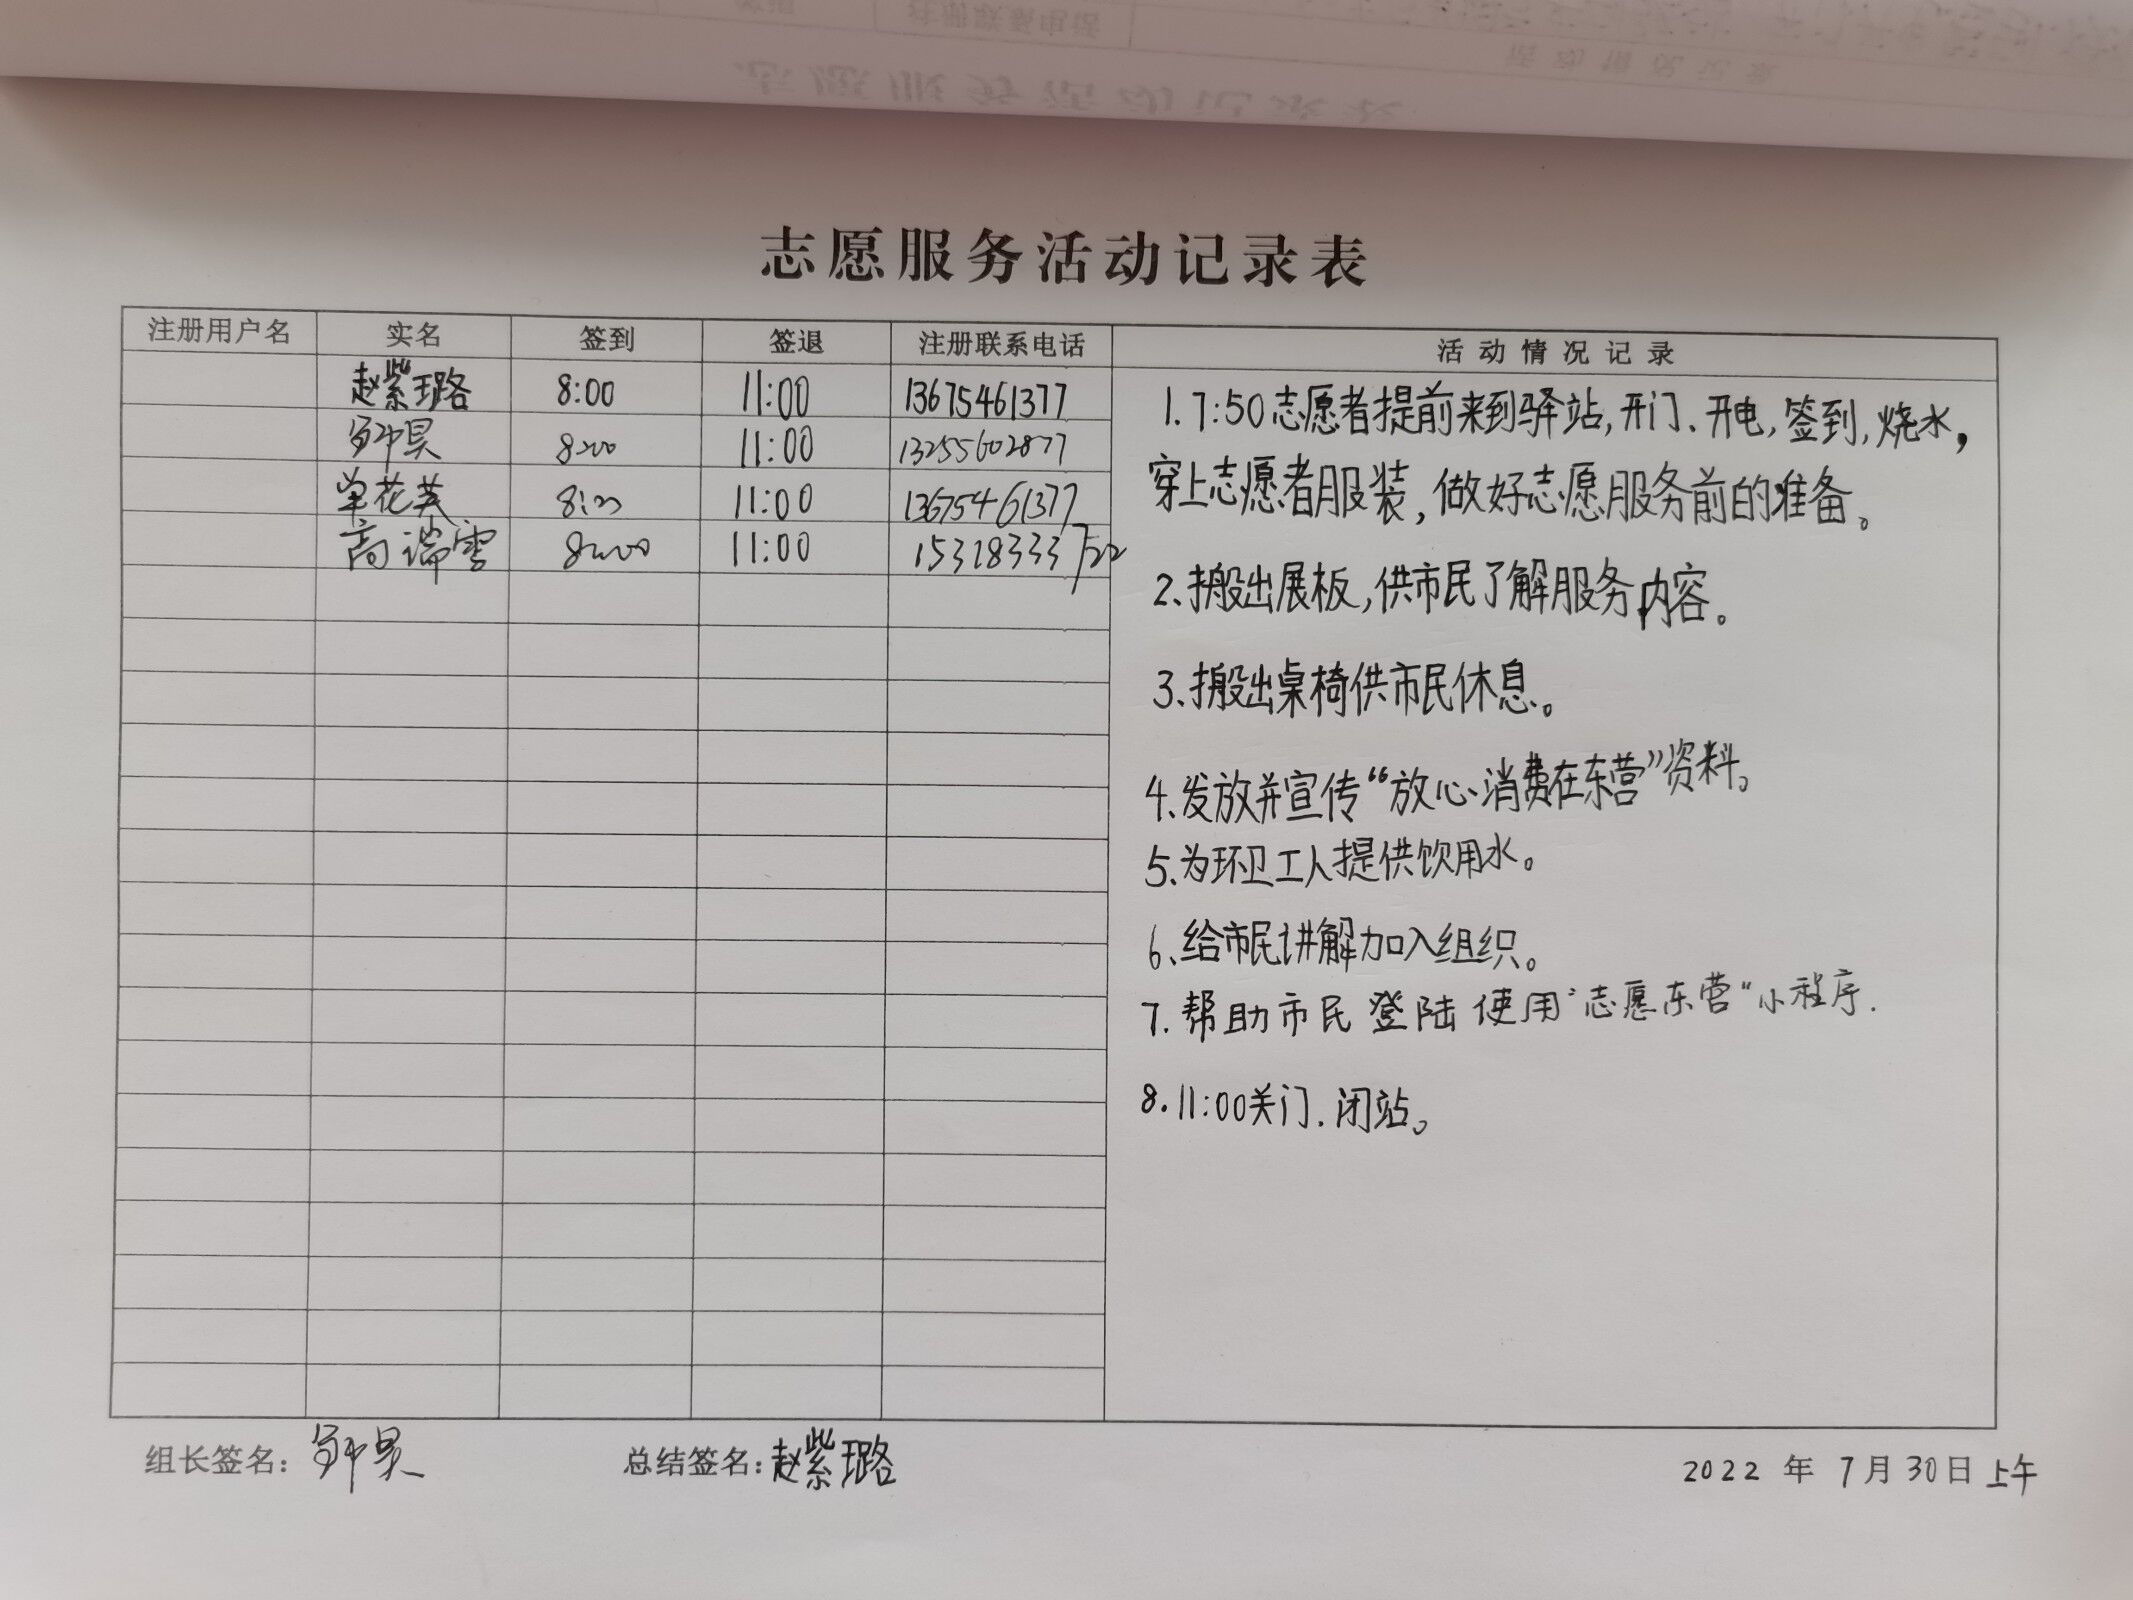 志愿服务活动记录表
注册用户名 实名 签到 签退 注册联系电话 活动情况记录
赵紫璐 8:00 11:00 13675461377
8:00 11:00 13255602877
单花英 8:00 11:00 13675461377
高瑞雪 8:00 11:00 15318333722
1.7:50志愿者提前来到驿站,开门、开电,签到,烧水,
穿上志愿者服装,做好志愿服务前的准备。
2、搬出展板,供市民了解服务内容。
3、搬出桌椅供市民休息。
4、发放并宣传“放心消费在东营”资料。
5、为环卫工人提供饮用水。
6、给市民讲解加入组织。
7.帮助市民登陆使用“志愿东营”小程序.
8.11:00关门.闭站。
组长签名:
总结签名:赵紫璐
2022年7月30日上午